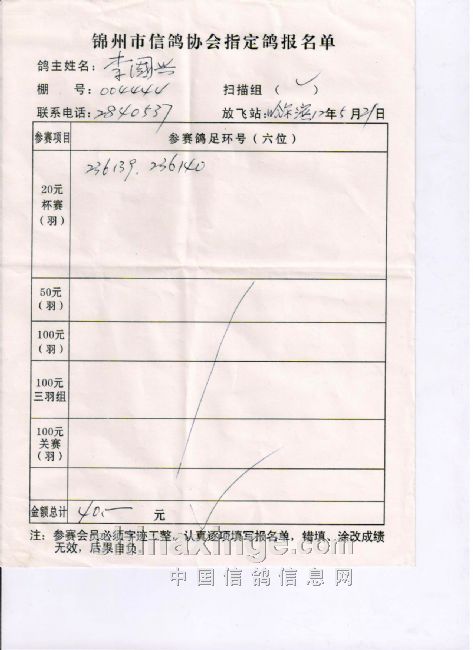 锦州市信鸽协会指定鸽报名单
鸽主姓名：李国兴
棚 号：004444 扫描组（✓）
联系电话：2840537 放飞站：哈尔滨12年5月21日
参赛项目 参赛鸽足环号（六位）
20元
杯赛
（羽）
236139. 236140
50元
（羽）
100元
（羽）
100元
三羽组
100元
关赛
（羽）
金额总计 40.— 元
注：参赛会员必须字迹工整，认真逐项填写报名单，错填、涂改成绩
无效，后果自负。
chinaxinge.com
中国信鸽信息网